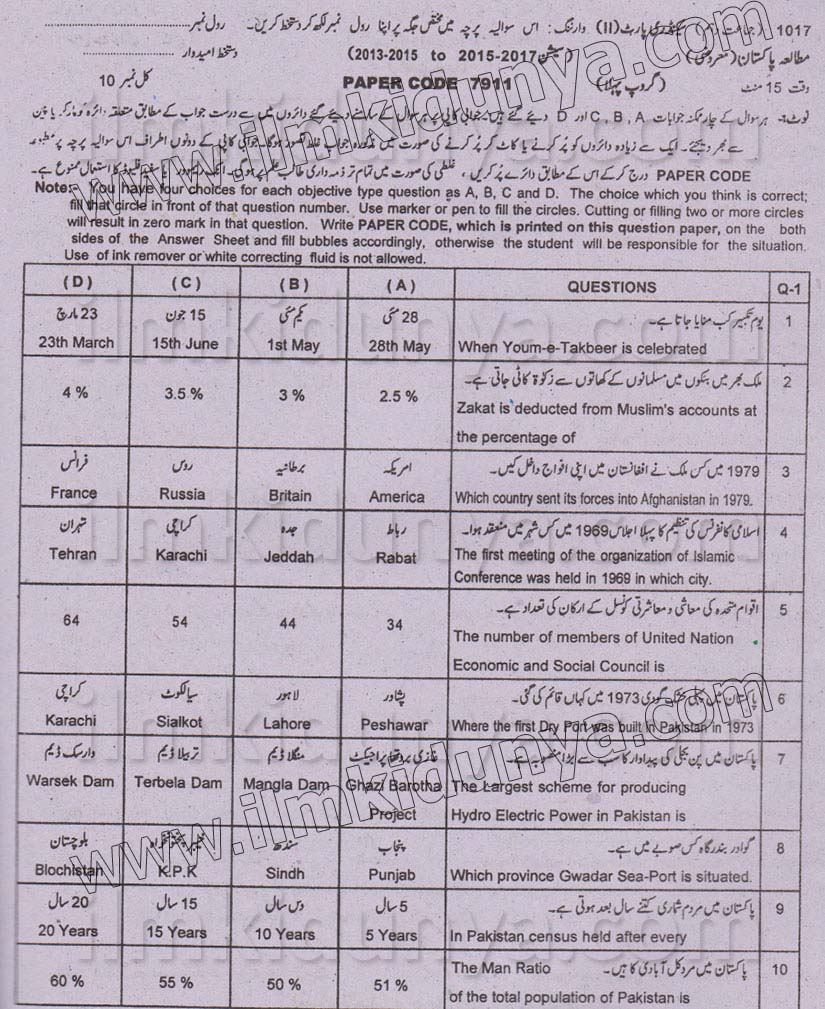 1017 (جماعت دہم) سیکنڈری پارٹ (II) وارننگ: اس سوالیہ پرچہ میں مختص جگہ پر اپنا رول نمبر لکھ کر دستخط کریں۔ رول نمبر
مطالعہ پاکستان (معروضی) (سیشن 2015-2017 to 2013-2015) دستخط امیدوار
وقت 15 منٹ (گروپ پہلا) PAPER CODE 7911 کل نمبر 10
نوٹ:۔ ہر سوال کے چار ممکنہ جوابات A ,B ,C اور D دیئے گئے ہیں۔ جوابی کاپی پر ہر سوال کے سامنے دیئے گئے دائروں میں سے درست جواب کے مطابق متعلقہ دائرہ کو مارکر یا پین
سے بھر دیجئے۔ ایک سے زیادہ دائروں کو پُر کرنے یا کاٹ کر پُر کرنے کی صورت میں مذکورہ جواب غلط تصور ہوگا۔ جوابی کاپی کے دونوں اطراف اس سوالیہ پرچہ پر مطبوعہ
PAPER CODE درج کر کے اس کے مطابق دائرے پُر کریں، غلطی کی صورت میں تمام تر ذمہ داری طالب علم پر ہوگی۔ کا استعمال ممنوع ہے۔
Note:- You have four choices for each objective type question as A, B, C and D. The choice which you think is correct;
fill that circle in front of that question number. Use marker or pen to fill the circles. Cutting or filling two or more circles
will result in zero mark in that question. Write PAPER CODE, which is printed on this question paper, on the both
sides of the Answer Sheet and fill bubbles accordingly, otherwise the student will be responsible for the situation.
Use of ink remover or white correcting fluid is not allowed.
( D ) ( C ) ( B ) ( A ) QUESTIONS Q-1
23 مارچ 15 جون یکم مئی 28 مئی یوم تکبیر کب منایا جاتا ہے۔ 1
23th March 15th June 1st May 28th May When Youm-e-Takbeer is celebrated
ملک بھر میں بنکوں میں مسلمانوں کے کھاتوں سے زکوٰۃ کاٹی جاتی ہے۔ 2
4 % 3.5 % 3 % 2.5 % Zakat is deducted from Muslim's accounts at
the percentage of
فرانس روس برطانیہ امریکہ 1979 میں کس ملک نے افغانستان میں اپنی افواج داخل کیں۔ 3
France Russia Britain America Which country sent its forces into Afghanistan in 1979.
تہران کراچی جدہ رباط اسلامی کانفرنس کی تنظیم کا پہلا اجلاس 1969 میں کس شہر میں منعقد ہوا۔ 4
Tehran Karachi Jeddah Rabat The first meeting of the organization of Islamic
Conference was held in 1969 in which city.
اقوام متحدہ کی معاشی و معاشرتی کونسل کے ارکان کی تعداد ہے۔ 5
64 54 44 34 The number of members of United Nation
Economic and Social Council is
کراچی سیالکوٹ لاہور پشاور پاکستان میں پہلی خشک گودی 1973 میں کہاں قائم کی گئی۔ 6
Karachi Sialkot Lahore Peshawar Where the first Dry Port was built in Pakistan in 1973
وارسک ڈیم تربیلا ڈیم منگلا ڈیم غازی بروتھا پراجیکٹ پاکستان میں پن بجلی کی پیداوار کا سب سے بڑا منصوبہ ہے۔ 7
Warsek Dam Terbela Dam Mangla Dam Ghazi Barotha Project The Largest scheme for producing
Hydro Electric Power in Pakistan is
بلوچستان خیبر پختونخواہ سندھ پنجاب گوادر بندرگاہ کس صوبے میں ہے۔ 8
Blochistan K.P.K Sindh Punjab Which province Gwadar Sea-Port is situated.
20 سال 15 سال دس سال 5 سال پاکستان میں مردم شماری کتنے سال بعد ہوتی ہے۔ 9
20 Years 15 Years 10 Years 5 Years In Pakistan census held after every
60 % 55 % 50 % 51 % The Man Ratio پاکستان میں مرد کل آبادی کا ہیں۔ 10
of the total population of Pakistan is
www.ilmkidunya.com
www.ilmkidunya.com
ilmkidunya.com